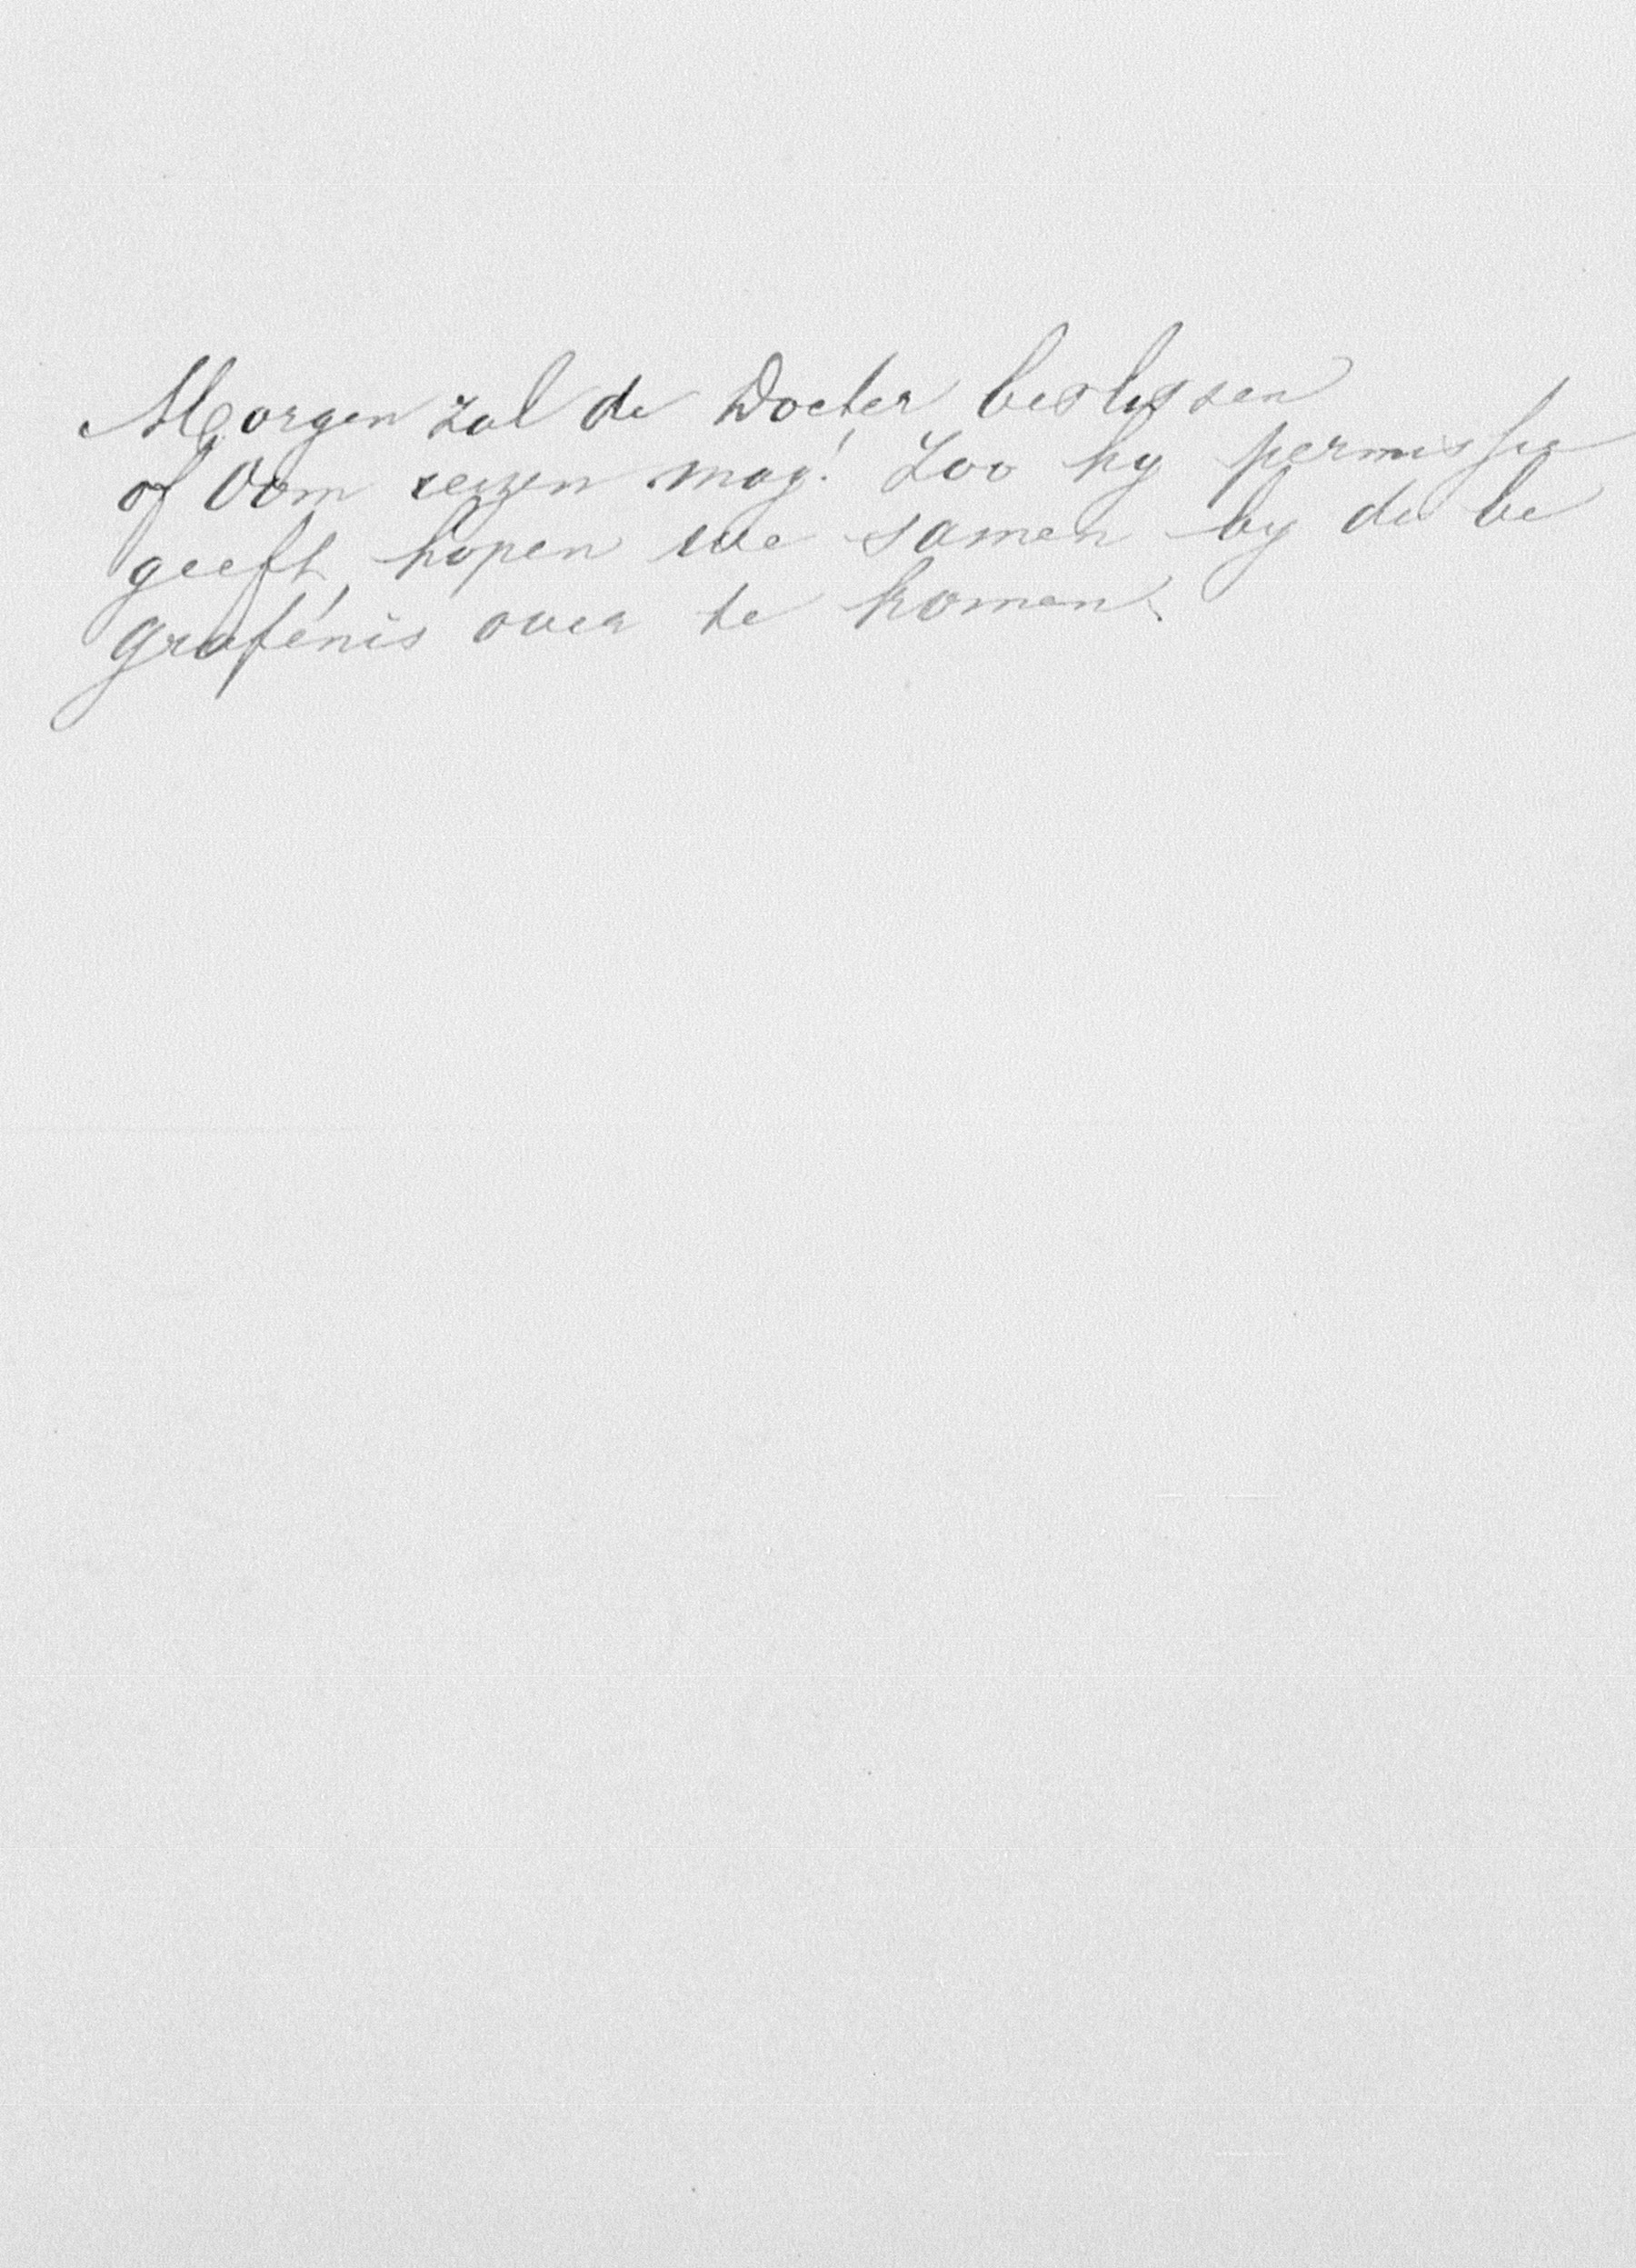 Morgen zal de Docter beslissen
of Oom reizen mag! Zoo hy permissie
geeft, hopen we samen by de be
grafenis over te komen.